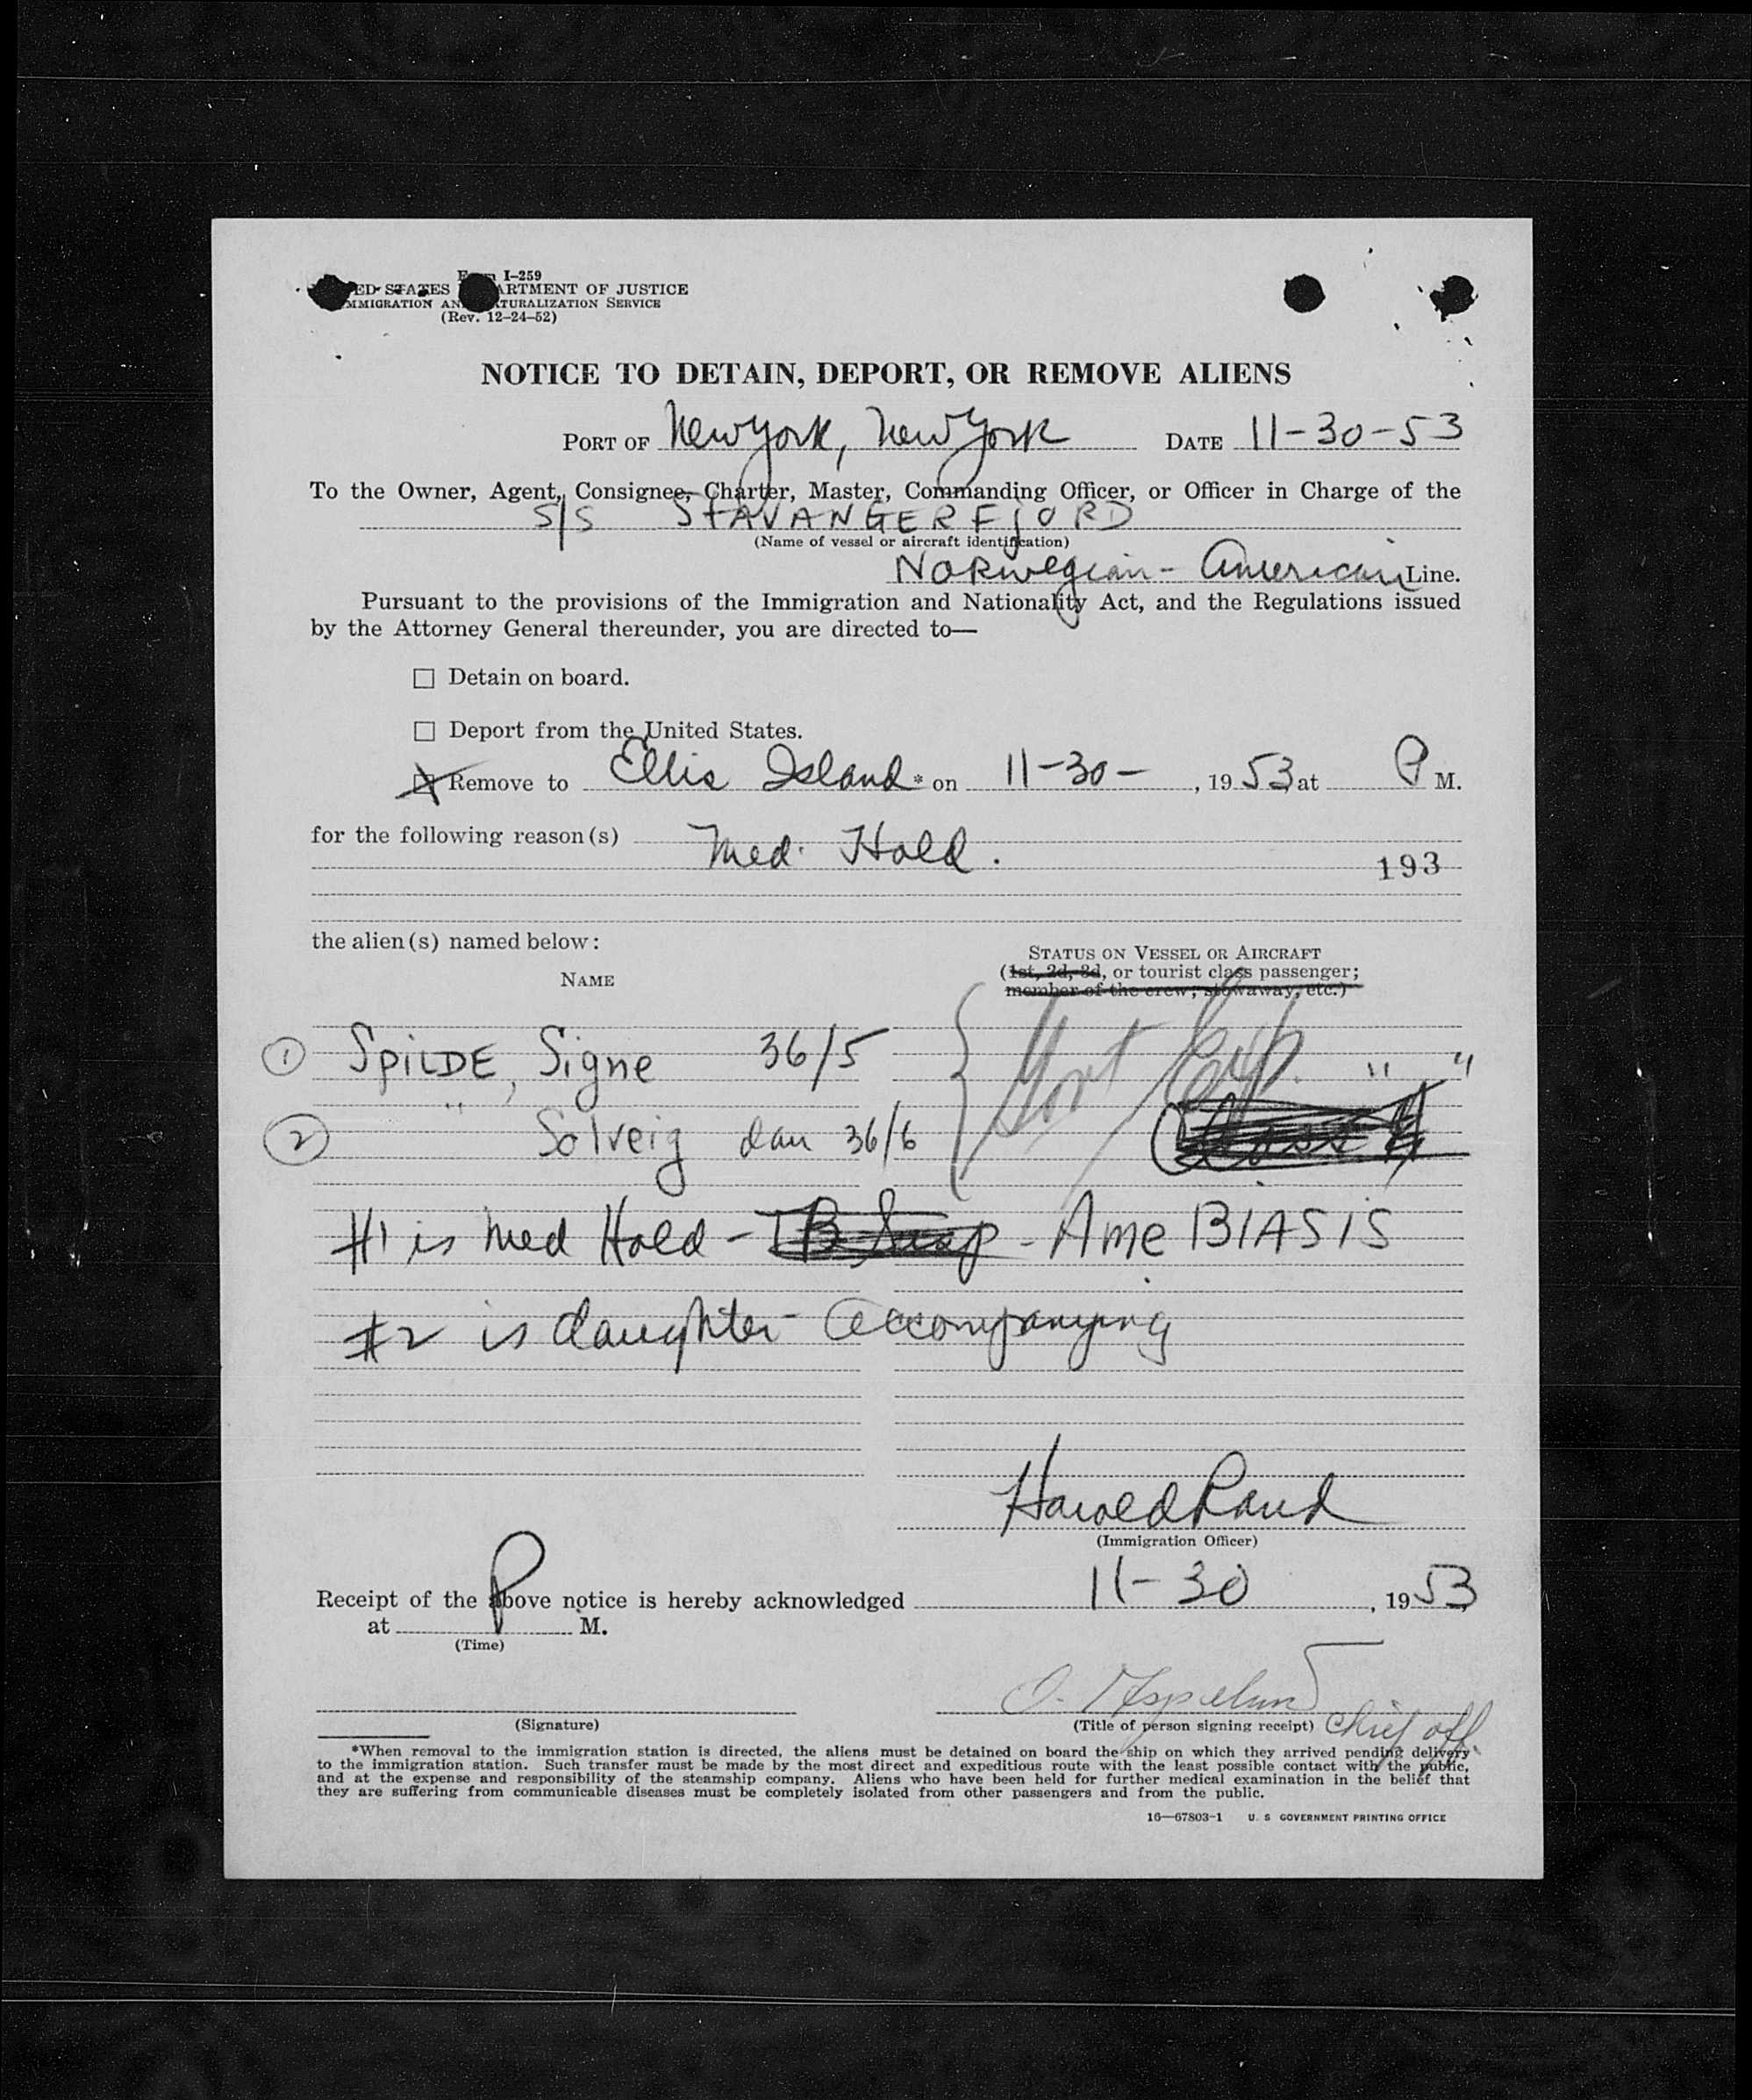 Form I-259
UNITED STATES DEPARTMENT OF JUSTICE
IMMIGRATION AND NATURALIZATION SERVICE
(Rev. 12-24-52)
NOTICE TO DETAIN, DEPORT, OR REMOVE ALIENS
PORT OF New York, New York DATE 11-30-53
To the Owner, Agent, Consignee, Charter, Master, Commanding Officer, or Officer in Charge of the
S/S STAVANGERFJORD
(Name of vessel or aircraft identification)
Norwegian - American Line.
Pursuant to the provisions of the Immigration and Nationality Act, and the Regulations issued
by the Attorney General thereunder, you are directed to—
☐ Detain on board.
☐ Deport from the United States.
☒ Remove to Ellis Island * on 11-30-, 1953 at P M.
for the following reason(s) Med. Hold.
193
the alien(s) named below:
STATUS ON VESSEL OR AIRCRAFT
NAME (1st, 2d, 3d, or tourist class passenger;
member of the crew; stowaway, etc.)
① SPILDE, Signe 36/5 " "
② " Solveig dau 36/6 Class
#1 is Med Hold - TB Susp - AmeBIASIS
#2 is daughter - accompanying
Harold Rand
(Immigration Officer)
Receipt of the above notice is hereby acknowledged 11-30, 1953
at P M.
(Time)
O.
(Signature) (Title of person signing receipt) Chief off.
*When removal to the immigration station is directed, the aliens must be detained on board the ship on which they arrived pending delivery
to the immigration station. Such transfer must be made by the most direct and expeditious route with the least possible contact with the public,
and at the expense and responsibility of the steamship company. Aliens who have been held for further medical examination in the belief that
they are suffering from communicable diseases must be completely isolated from other passengers and from the public.
16—67803-1 U. S GOVERNMENT PRINTING OFFICE